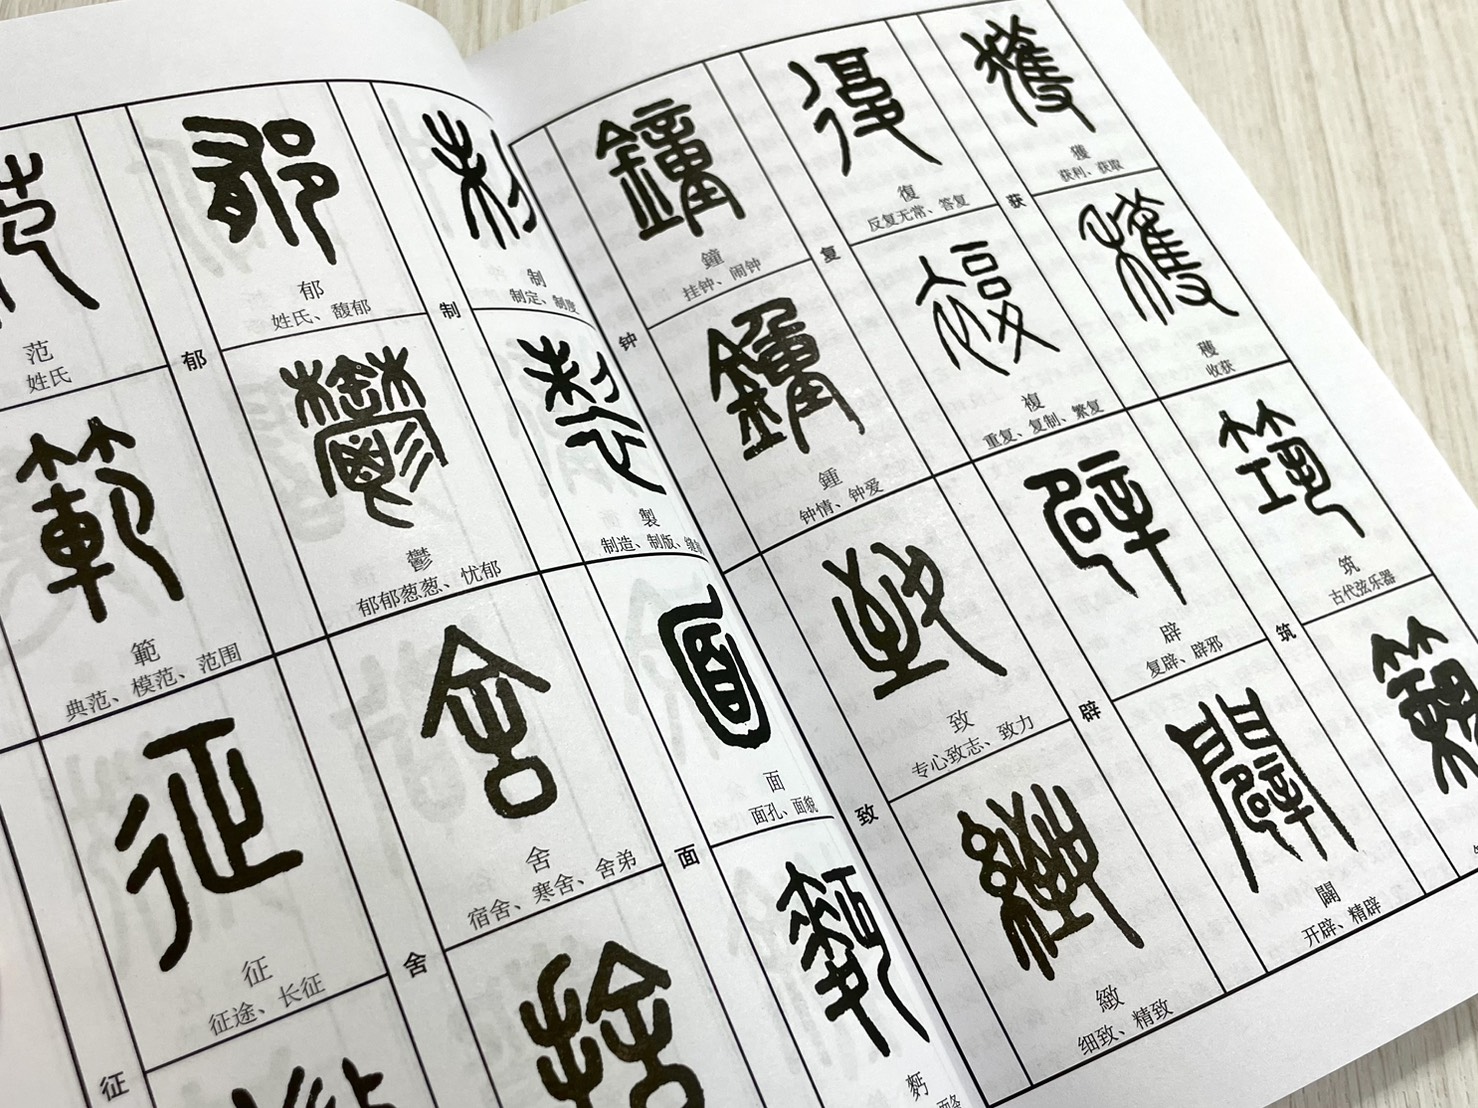 范
姓氏
範
典范、模范、范围
郁
郁
姓氏、馥郁
鬱
郁郁葱葱、忧郁
制
制
制定、制度
製
制造、制版、缝制
征
征
征途、长征
舍
舍
宿舍、寒舍、舍弟
面
面
面孔、面貌
钟
鐘
挂钟、闹钟
鍾
钟情、钟爱
复
復
反复无常、答复
複
重复、复制、繁复
获
獲
获利、获取
穫
收获
致
致
专心致志、致力
緻
细致、精致
辟
辟
复辟、辟邪
闢
开辟、精辟
筑
筑
古代弦乐器